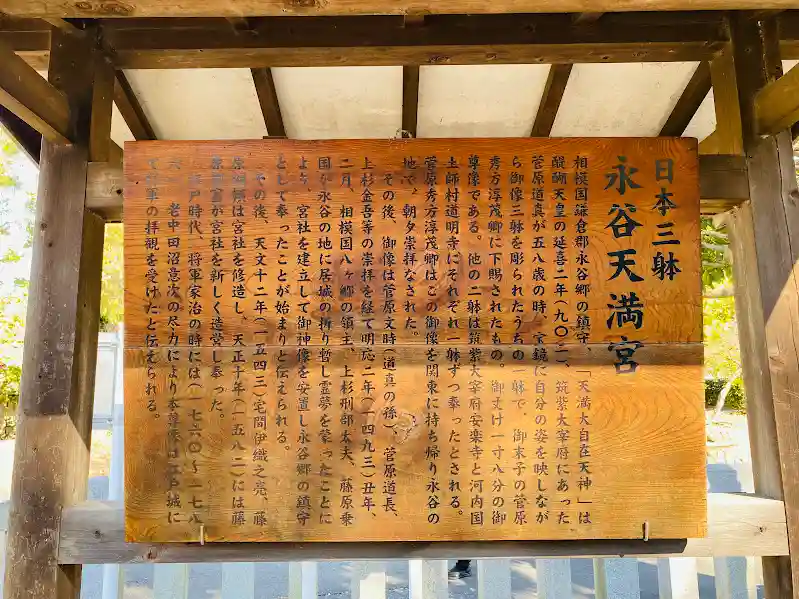 日本三躰
永谷天満宮
相模国鎌倉郡永谷郷の鎮守、「天満大自在天神」は
醍醐天皇の延喜二年(九〇二)、筑紫大宰府にあった
菅原道真が五八歳の時、宝鏡に自分の姿を映しなが
ら御像三躰を彫られたうちの一躰で、御末子の菅原
秀方淳茂卿に下賜されたもの。御丈け一寸八分の御
尊像である。他の二躰は筑紫大宰府安楽寺と河内国
土師村道明寺にそれぞれ一躰ずつ奉ったとされる。
菅原秀方淳茂卿はこの御像を関東に持ち帰り永谷の
地で、朝夕崇拝なされた。
その後、御像は菅原文時(道真の孫)、菅原道長、
上杉金吾等の崇拝を経て明応二年(一四九三)丑年、
二月、相模国八ヶ郷の領主、上杉刑部太夫、藤原乗
国が永谷の地に居城の折り暫し霊夢を蒙ったことに
より、宮社を建立して御神像を安置し永谷郷の鎮守
として奉ったことが始まりと伝えられる。
その後、天文十二年(一五四三)宅間伊織之亮、藤
原規綱は宮社を修造し、天正十年(一五八二)には藤
原冨が宮社を新しく造営し奉った。
江戸時代、将軍家治の時には(一七六〇～一七八
六)、老中田沼意次の尽力により本尊像は江戸城に
て将軍の拝観を受けたと伝えられる。